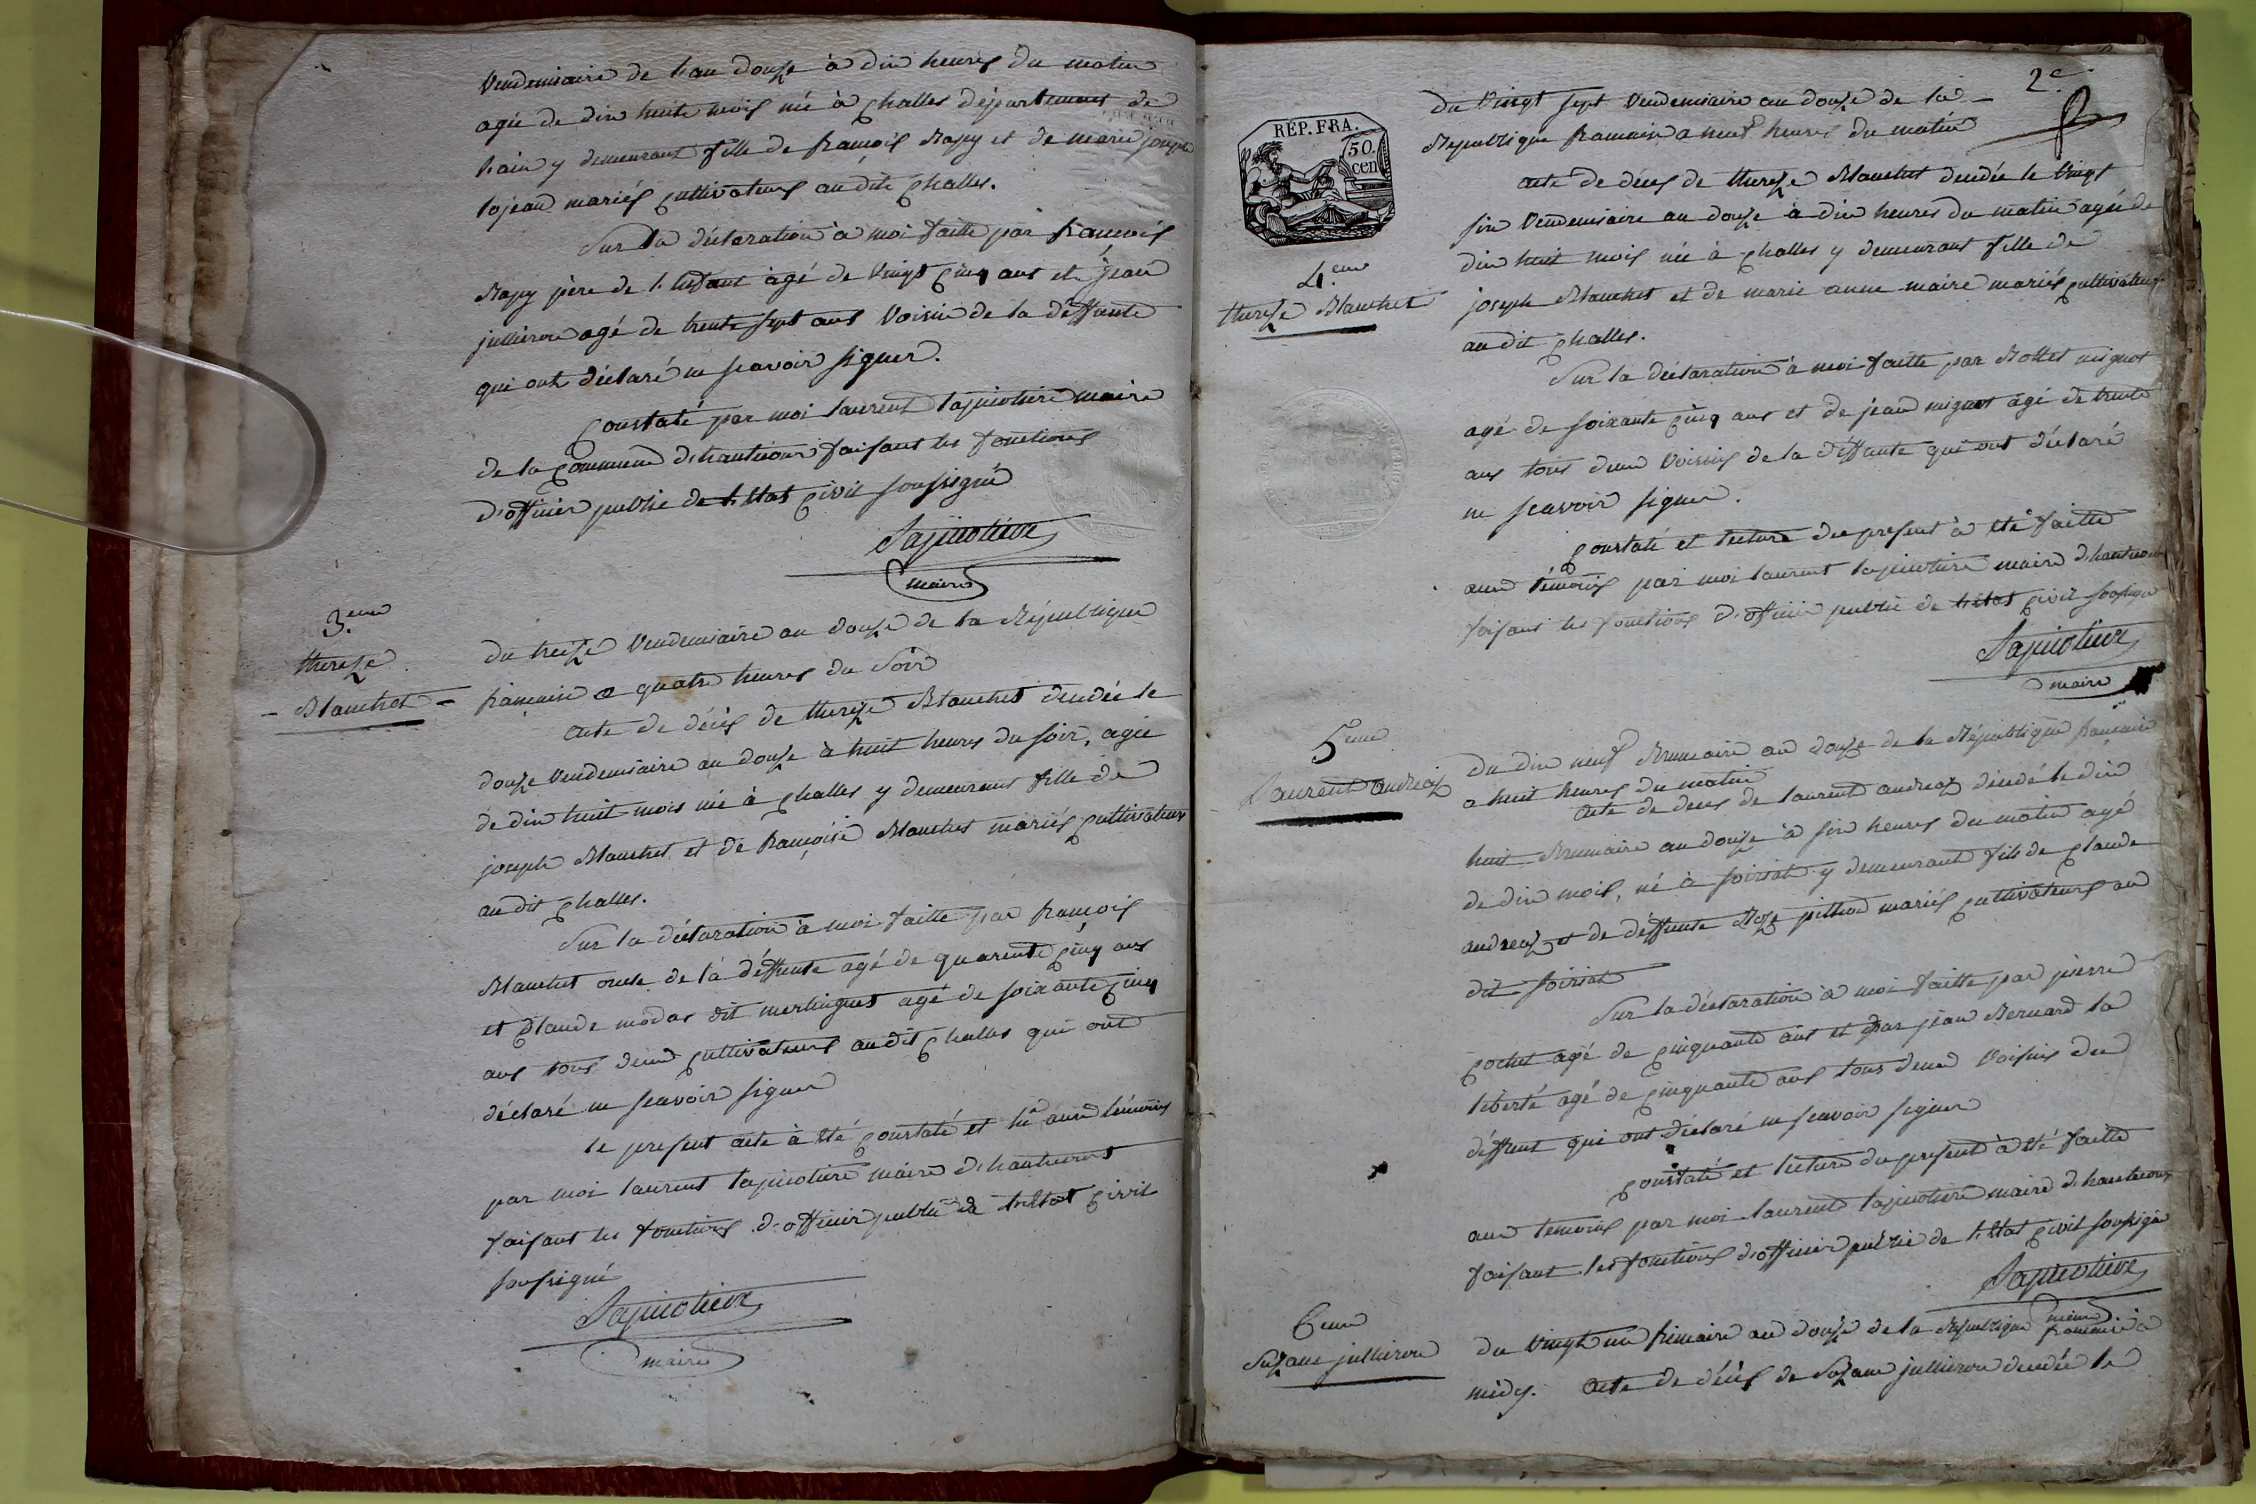 Vendemiaire de l'an douze à dix heures du matin
agée de dix huite mois née à Challes département de
l'ain y demeurant fille de françois Rapy et de marie josephe
lojean mariés cultivateurs au dit Challes.
Sur la déclaration à moi faitte par françois
Rapy père de l'enfant agé de Vingt Cinq ans et jean
jullieron agé de trente sept ans Voisin de la déffunte
qui onts déclaré ne scavoir signer.
Constaté par moi laurent lajuiotiere maire
de la Commune d'hautecour faisant les fonctions
d'officier public de l'Etat Civil soussigné
Lajuiotiere
maire
3.eme
thereze
- Blanchet -
du treize Vendemiaire an douze de la République
française a quatre heures du Soir
acte de décès de thereze Blanchet décédée le
douze Vendemiaire an douze à huit heures du soir, agée
de dix huit mois née à Challes y demeurant fille de
joseph Blanchet et de françoise Blanchet mariés cultivateurs
au dit Challes.
Sur la déclaration à moi faitte par françois
Blanchet oncle de la déffunte agé de quarente Cinq ans
et Claude modas dit merlinguet agé de soixante Cinq
ans tous deux Cultivateurs au dit Challes qui ont
déclaré ne scavoir signer
le present acte à été Constaté et lu aux témoins
par moi laurent lajuiotiere maire d'hautecour
faisant les fonctions d'officier public de l'Etat Civil
soussigné
Lajuiotiere
maire
2.e
REP. FRA.
50.
cen
du Vingt sept Vendemiaire an douze de la
Republique francaise a neuf heures du matin
4.eme
thereze Blanchet
acte de décès de thereze Blanchet décédée le Vingt
six Vendemiaire an douze à dix heures du matin agée de
dix huit mois née à Challes y demeurant fille de
joseph Blanchet et de marie anne maire mariés cultivateurs
au dit Challes.
Sur la déclaration à moi faitte par mignot
agé de soixante Cinq ans et de jean mignot agé de trente
ans tous deux Voisins de la déffunte qui ont déclaré
ne scavoir signer.
Constaté et lecture du present à été faitte
aux témoins par moi laurent lajuiotiere maire d'hautecour
faisant les fonctions d'officier public de l'état Civil soussigné
Lajuiotiere
maire
5eme
Laurent andreaz
du dix neuf Brumaire an douze de la République française
a huit heures du matin
acte de deces de laurent andreaz décédé le dix
huit Brumaire an douze à six heures du matin agé
de dix mois, né à soiriat y demeurant fils de Claude
andreaz et de déffunte Roze pillion mariés cultivateurs au
dit soiriat
Sur la déclaration à moi faitte par pierre
Cochet agé de Cinquante ans et par jean Bernard la
liberté agé de Cinquante ans tous deux Voisins du
déffunt qui ont déclaré ne scavoir signer
Constaté et lecture du present à été faitte
aux temoins par moi laurent lajuiotiere maire d'hautecour
faisant les fonctions d'officier public de l'Etat Civil soussigné
Lajuiotiere
maire
6eme
Suzane jullieron
du Vingt un frimaire an douze de la République francaise a
midy. acte de décès de Suzane jullieron décédée le